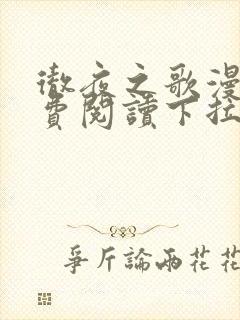 徹夜之歌漫
費閱讀下拉
爭斤論兩花花